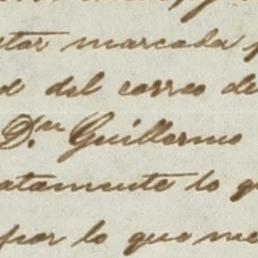 star marcada p
d del correo de
D.ⁿ Guillermo
atamente lo q
por lo que me